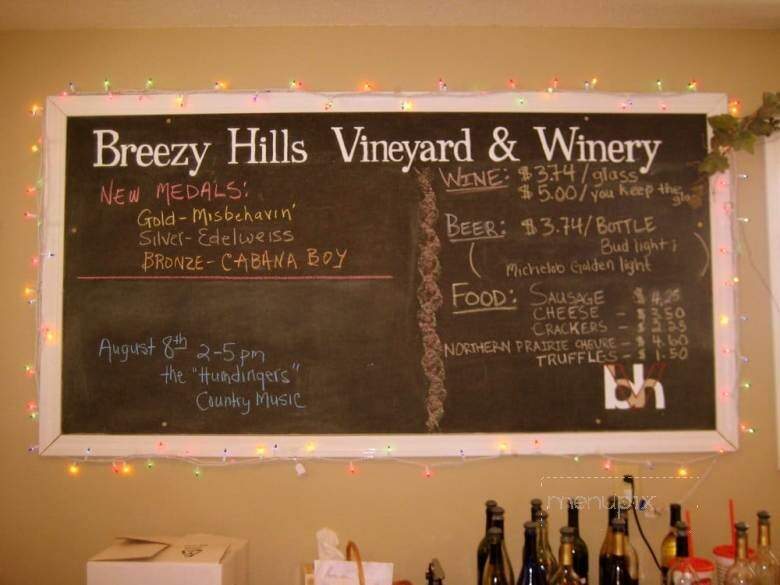 Breezy Hills Vineyard & Winery
NEW MEDALS:
Gold - Misbehavin'
Silver - Edelweiss
BRONZE - CABANA BOY
August 8th 2-5 pm
the "Humdingers"
Country Music
WINE: $3.74/glass
$5.00/you keep the
BEER: $3.74/BOTTLE
Bud light;
( Michelob Golden light )
FOOD: SAUSAGE $4.25
CHEESE - $3.50
CRACKERS - $2.25
NORTHERN PRAIRIE CHEVRE - $4.60
TRUFFLES - $1.50
bvh
menupix